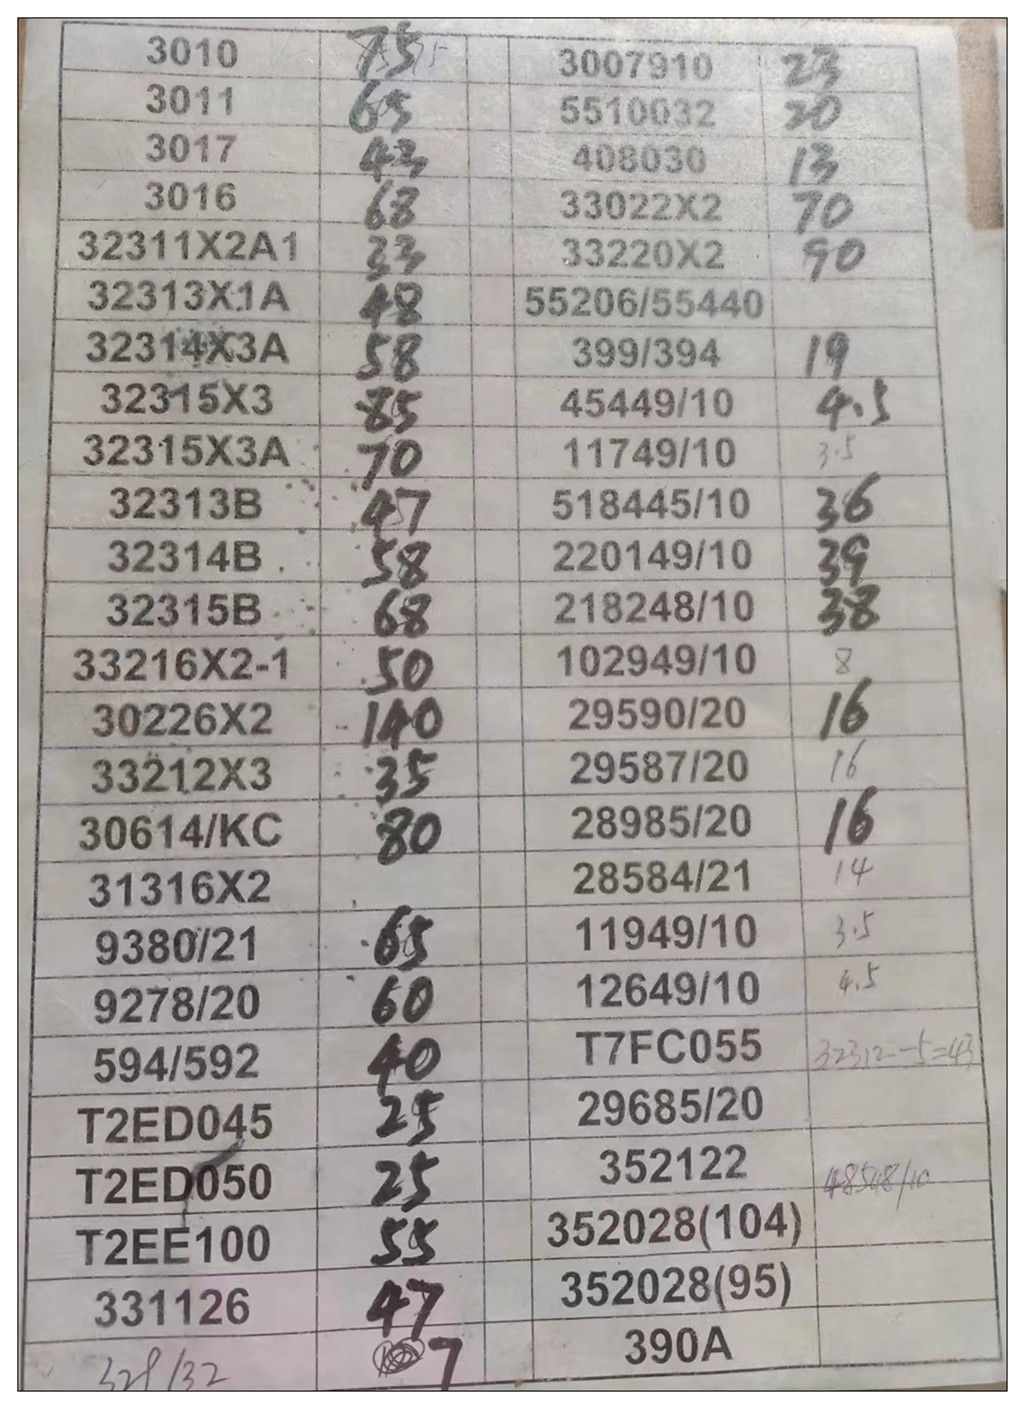 3010 75 3007910 23
3011 65 5510032 20
3017 43 408030 13
3016 68 33022X2 70
32311X2A1 33 33220X2 90
32313X1A 48 55206/55440
32314X3A 58 399/394 19
32315X3 85 45449/10 4.5
32315X3A 70 11749/10 3.5
32313B 47 518445/10 36
32314B 58 220149/10 39
32315B 68 218248/10 38
33216X2-1 50 102949/10 8
30226X2 140 29590/20 16
33212X3 35 29587/20 16
30614/KC 80 28985/20 16
31316X2 28584/21 14
9380/21 65 11949/10 3.5
9278/20 60 12649/10 4.5
594/592 40 T7FC055 32312-5=43
T2ED045 25 29685/20
T2ED050 25 352122 48548/10
T2EE100 55 352028(104)
331126 47 352028(95)
329/32 7 390A